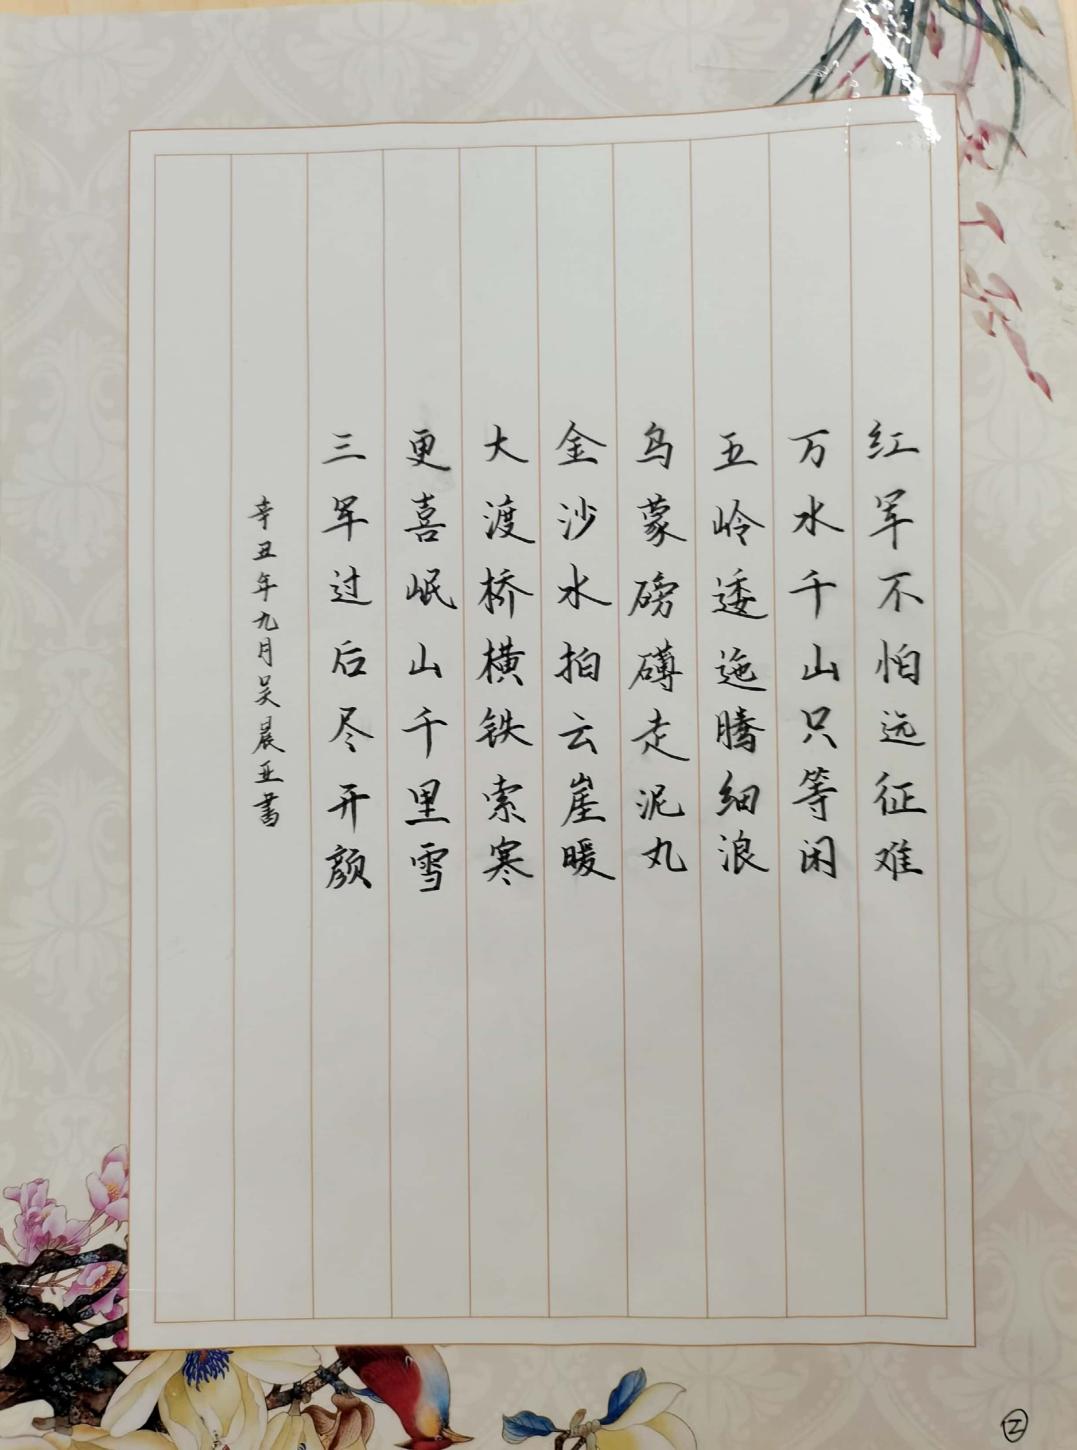 红军不怕远征难
万水千山只等闲
五岭逶迤腾细浪
乌蒙磅礴走泥丸
金沙水拍云崖暖
大渡桥横铁索寒
更喜岷山千里雪
三军过后尽开颜
辛丑年九月吴晨亚書